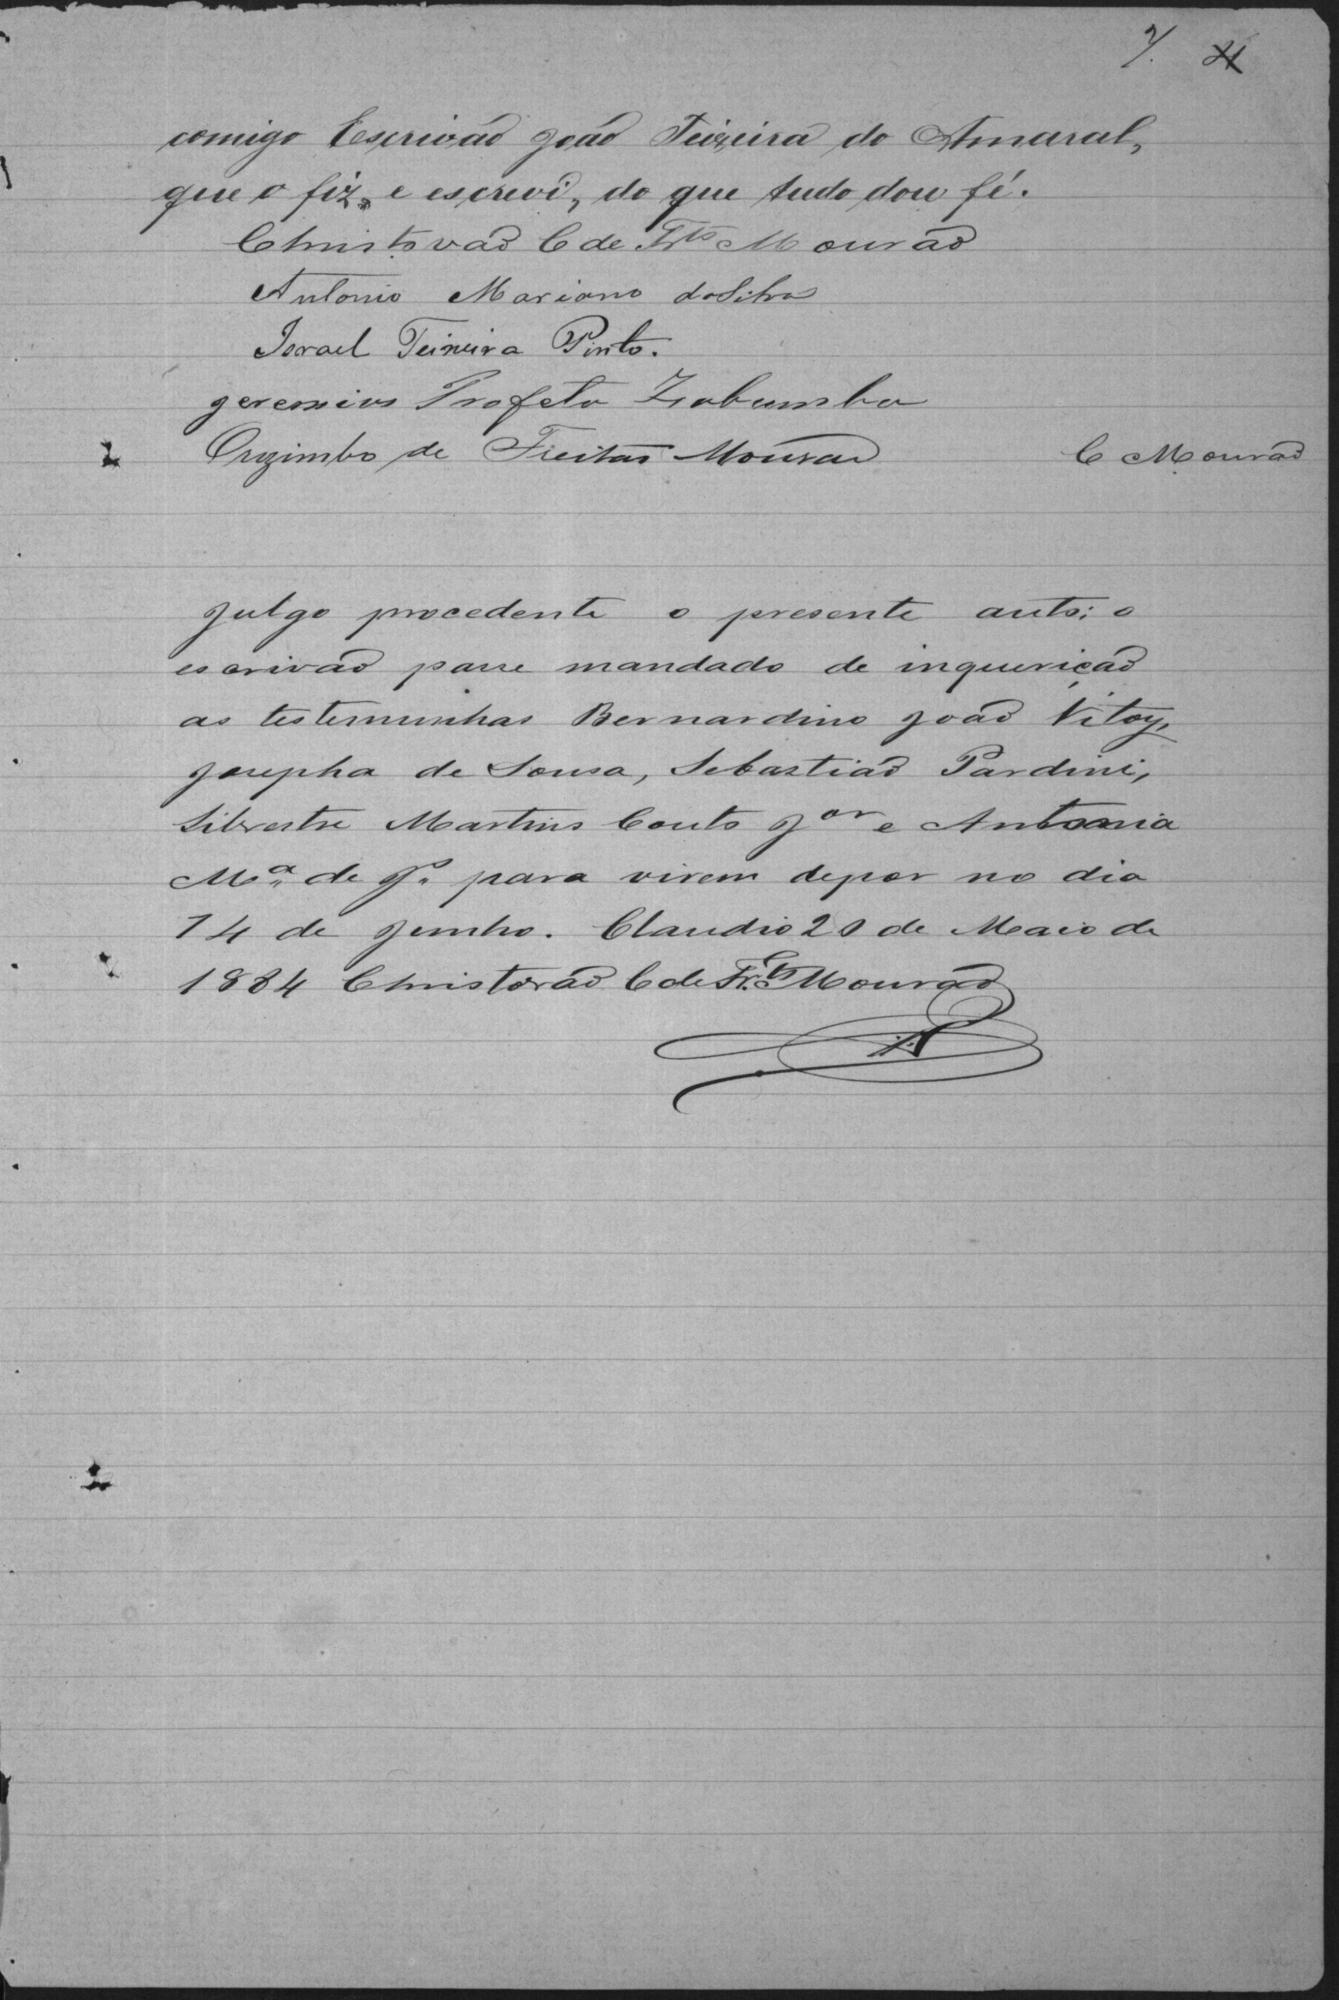 7.
comigo Escrivão João Teixeira do Amaral,
que o fiz, e escrevi, do que tudo dou fé.
Christovão C de Frts Mourão
Antonio Mariano da Silva
Israel Teixeira Pinto.
geremias Profeta Zabumba
Orozimbo de Freitas Mourão
C Mourão
Julgo procedente o presente auto; o
escrivão passe mandado de inquerição
as testemunhas Bernardino João
Josepha de Sousa, Sebastião Pardini,
Silvestre Martins Couto Jor e Antonia
Ma de J. para virem depor no dia
14 de Junho. Claudio 20 de Maio de
1884 Christovão C de Frts Mourão